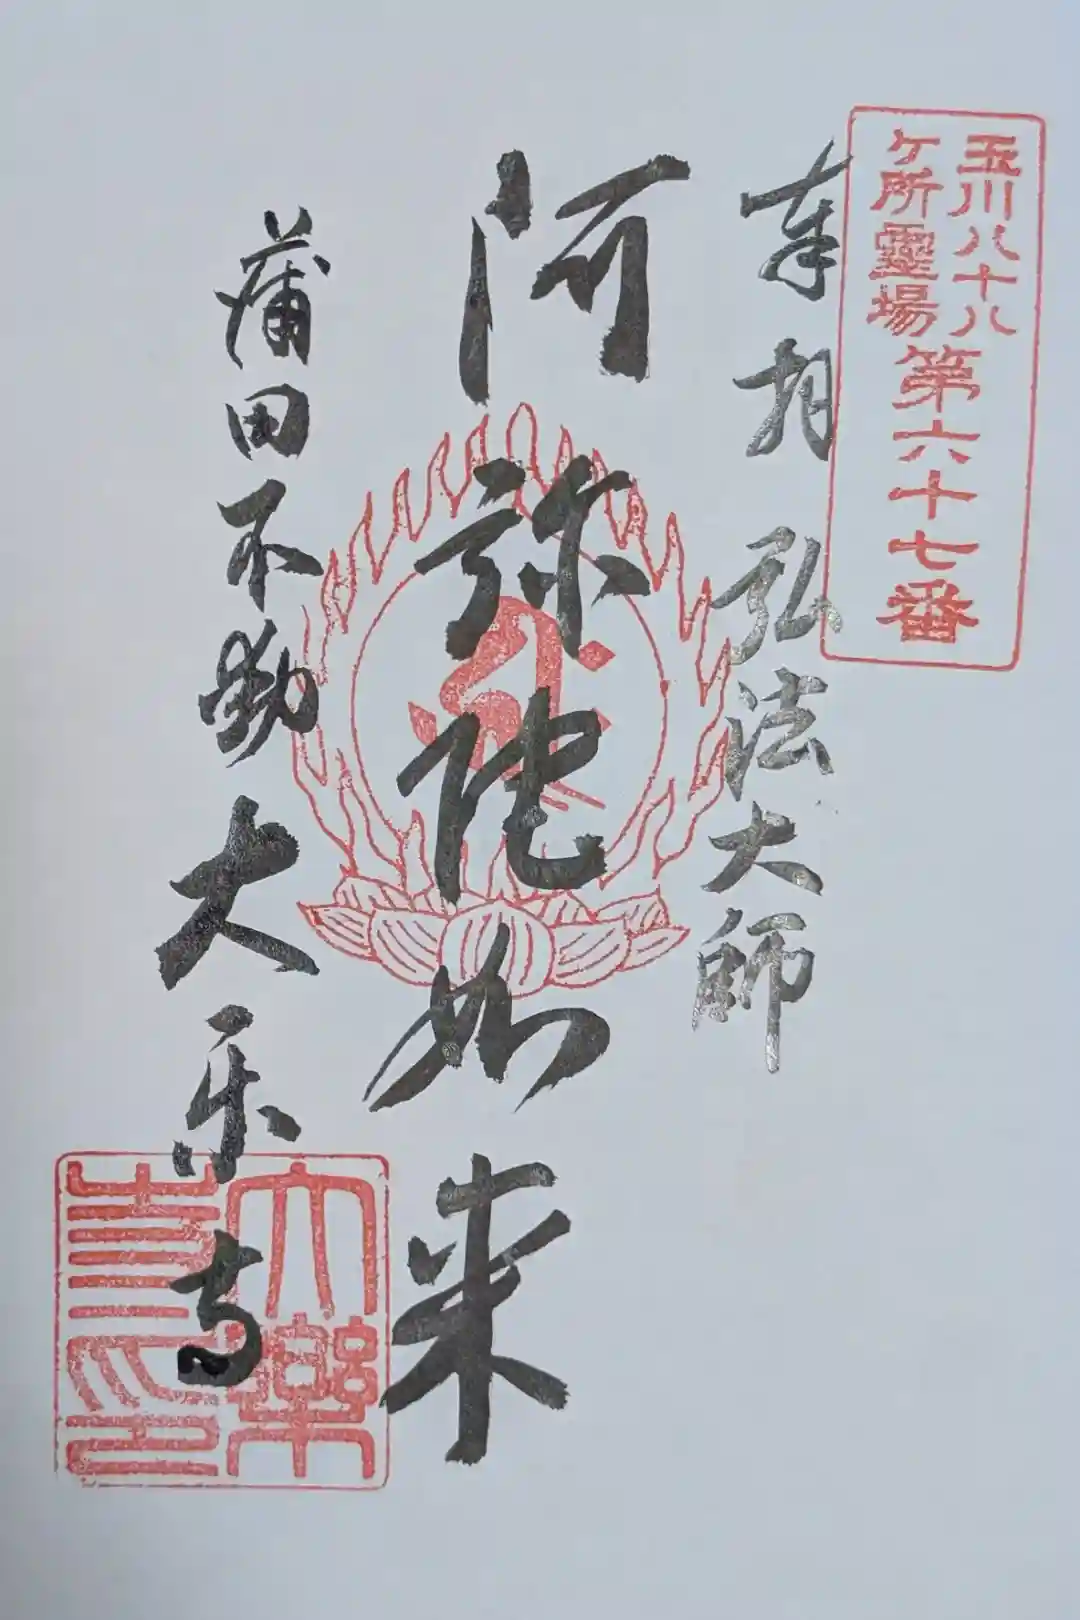 玉川八十八
ケ所霊場
第六十七番
奉拝 弘法大師
阿弥陀如来
蒲田不動大楽寺
大樂
寺印